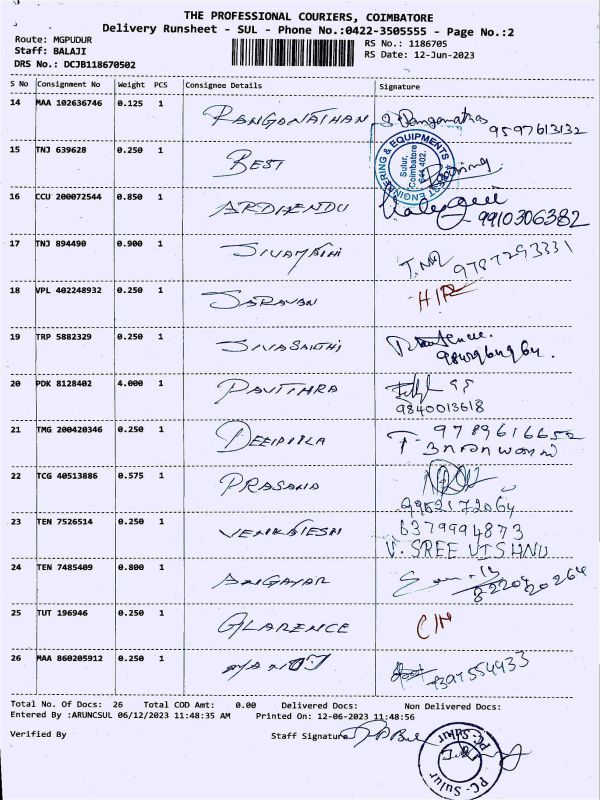 THE PROFESSIONAL COURIERS, COIMBATORE
Delivery Runsheet - SUL - Phone No.:0422-3505555 - Page No.:2
Route: MGPUDUR
Staff: BALAJI
DRS No.: DCJB118670502
RS No.: 1186705
RS Date: 12-Jun-2023
S No Consignment No Weight PCS Consignee Details Signature
14 MAA 102636746 0.125 1 RANGANATHAN
9597613132
15 TNJ 639628 0.250 1 BEST
ENGINEERING & EQUIPMENTS
Sulur,
Coimbatore
641 402.
16 CCU 200072544 0.850 1 ARDHENDU
9910306382
17 TNJ 894490 0.900 1 SIVAMATHI
9787293331
18 VPL 402248932 0.250 1 SARAVAN
19 TRP 5882329 0.250 1 SIVASAKTHI
20 PDK 8128402 4.000 1 PAVITHRA
9840013618
21 TMG 200420346 0.250 1
22 TCG 40513886 0.575 1 PRASANA
23 TEN 7526514 0.250 1 VENKATESH 6379994873
V. SREE VISHNU
24 TEN 7485409 0.800 1 ANGAYAR
25 TUT 196946 0.250 1 GLARENCE
26 MAA 860205912 0.250 1 MANOJ
Total No. Of Docs: 26 Total COD Amt: 0.00 Delivered Docs: Non Delivered Docs:
Entered By :ARUNCSUL 06/12/2023 11:48:35 AM Printed On: 12-06-2023 11:48:56
Verified By Staff Signature
PC-Sulur
PC-Sulur